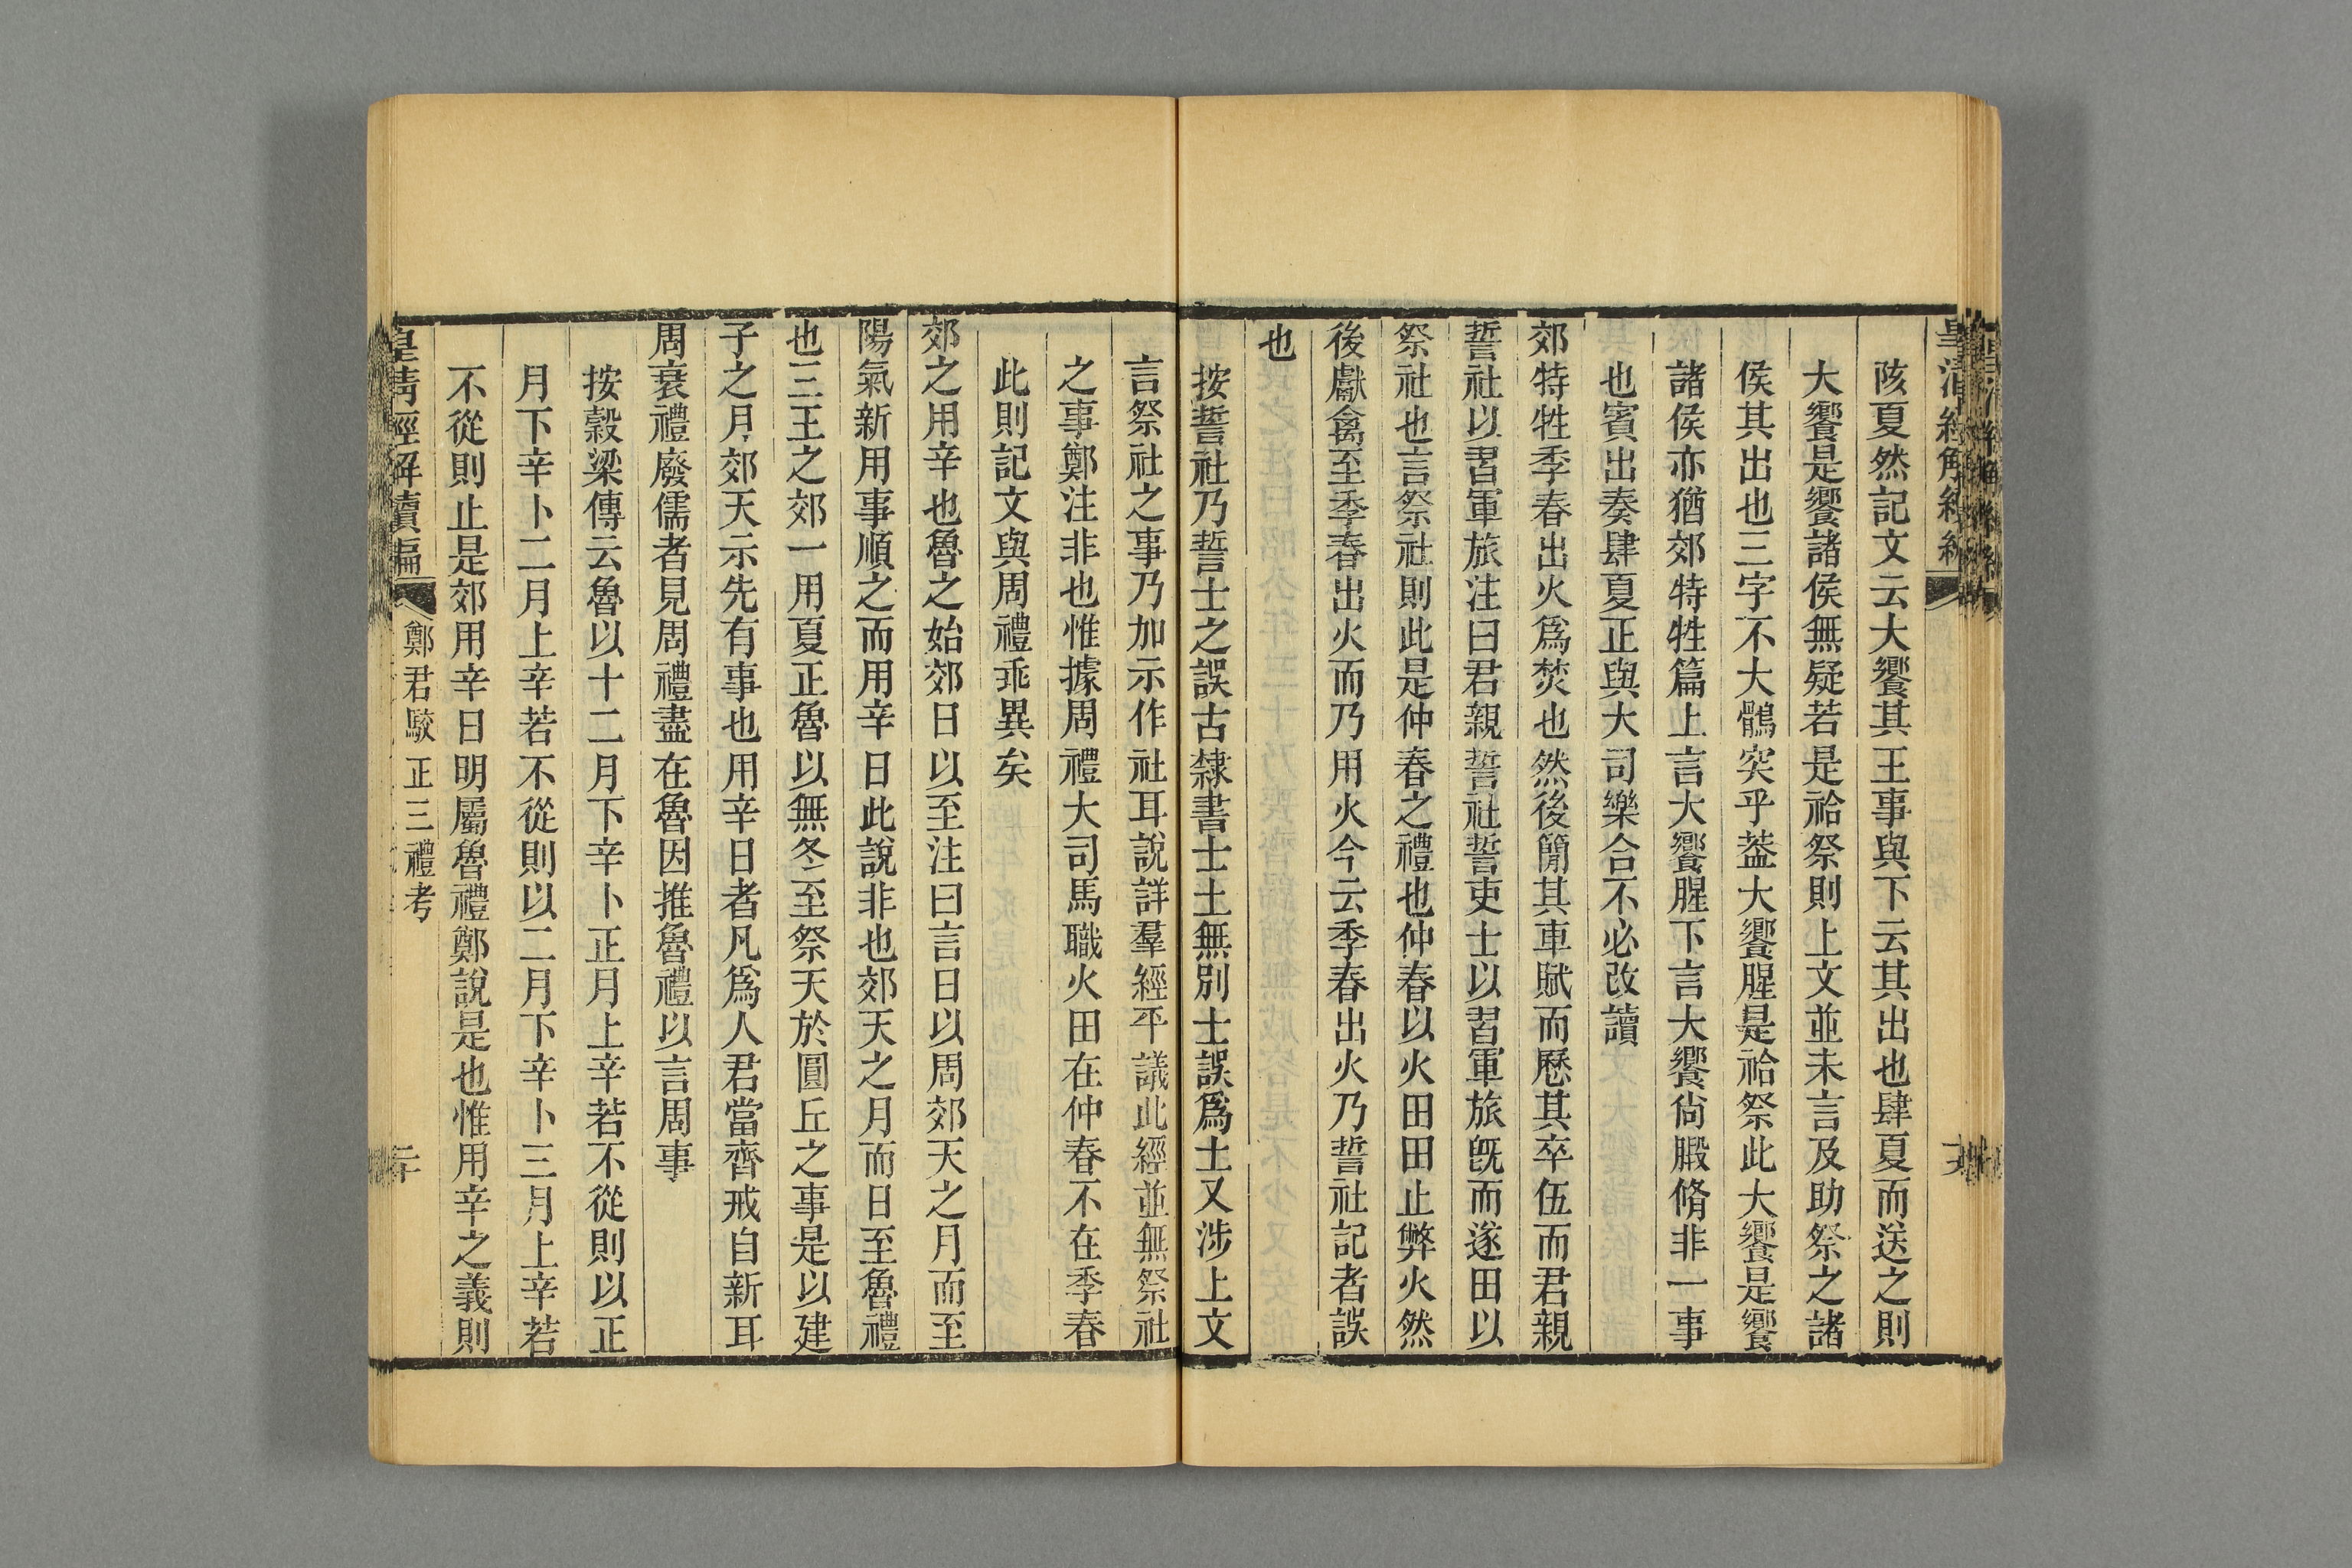 陔夏然記文云大饗其王事與下云其出也肆夏而送之則
大饗是饗諸侯無疑若是祫祭則上文並未言及助祭之諸
侯其出也三字不大鶻突乎葢大饗腥是祫祭此大饗是饗
諸侯亦猶郊特牲篇上言大饗腥下言大饗尙腶脩非一事
也賓出奏肆夏正與大司樂合不必改讀
郊特牲季春出火爲焚也然後簡其車賦而歷其卒伍而君親
誓社以習軍旅注曰君親誓社誓吏士以習軍旅旣而遂田以
祭社也言祭社則此是仲春之禮也仲春以火田田止弊火然
後獻禽至季春出火而乃用火今云季春出火乃誓社記者誤
也
按誓社乃誓士之誤古隸書士土無別士誤爲土又涉上文
言祭社之事乃加示作社耳說詳羣經平議此經並無祭社
之事鄭注非也惟據周禮大司馬職火田在仲春不在季春
此則記文與周禮乖異矣
郊之用辛也魯之始郊日以至注曰言日以周郊天之月而至
陽氣新用事順之而用辛日此說非也郊天之月而日至魯禮
也三王之郊一用夏正魯以無冬至祭天於圓丘之事是以建
子之月郊天示先有事也用辛日者凡爲人君當齊戒自新耳
周衰禮廢儒者見周禮盡在魯因推魯禮以言周事
按穀梁傳云魯以十二月下辛卜正月上辛若不從則以正
月下辛卜二月上辛若不從則以二月下辛卜三月上辛若
不從則止是郊用辛日明屬魯禮鄭說是也惟用辛之義則
皇清經解續編
鄭君駁正三禮考
二十